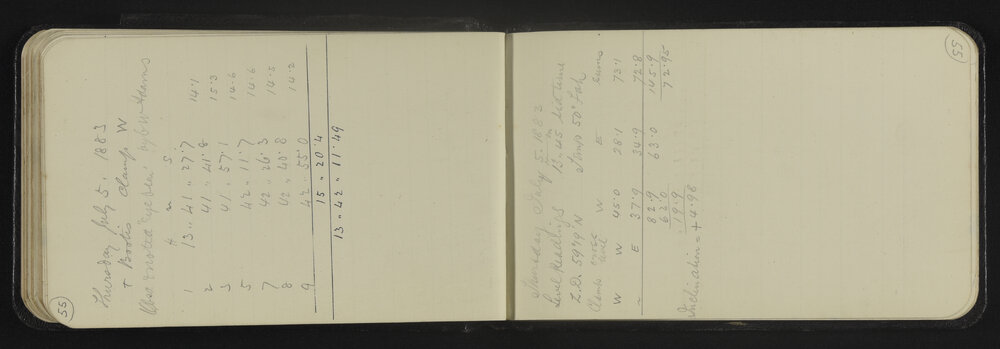 55
Thursday July 5. 1883
τ Bootis Clamp W
H m S
1 13 " 41 " 27.7 14.1
2 41 " 41.8 15.3
3 41 " 57.1 14.6
5 42 " 11.7 14.6
7 42 " 26.3 14.5
8 42 " 40.8 14.2
9 42 55.0
15 " 20.4
13 " 42 " 11.49
55
Thursday July 5. 1883
Level Readings 13.45
Z.D. 59 79 N Temp 50°
Clamp W E Sums
W W 45.0 28.1 73.1
~ E 37.9 34.9 72.8
82.9 63.0 145.9
63.0 72.95
19.9
Inclination = + 4.98